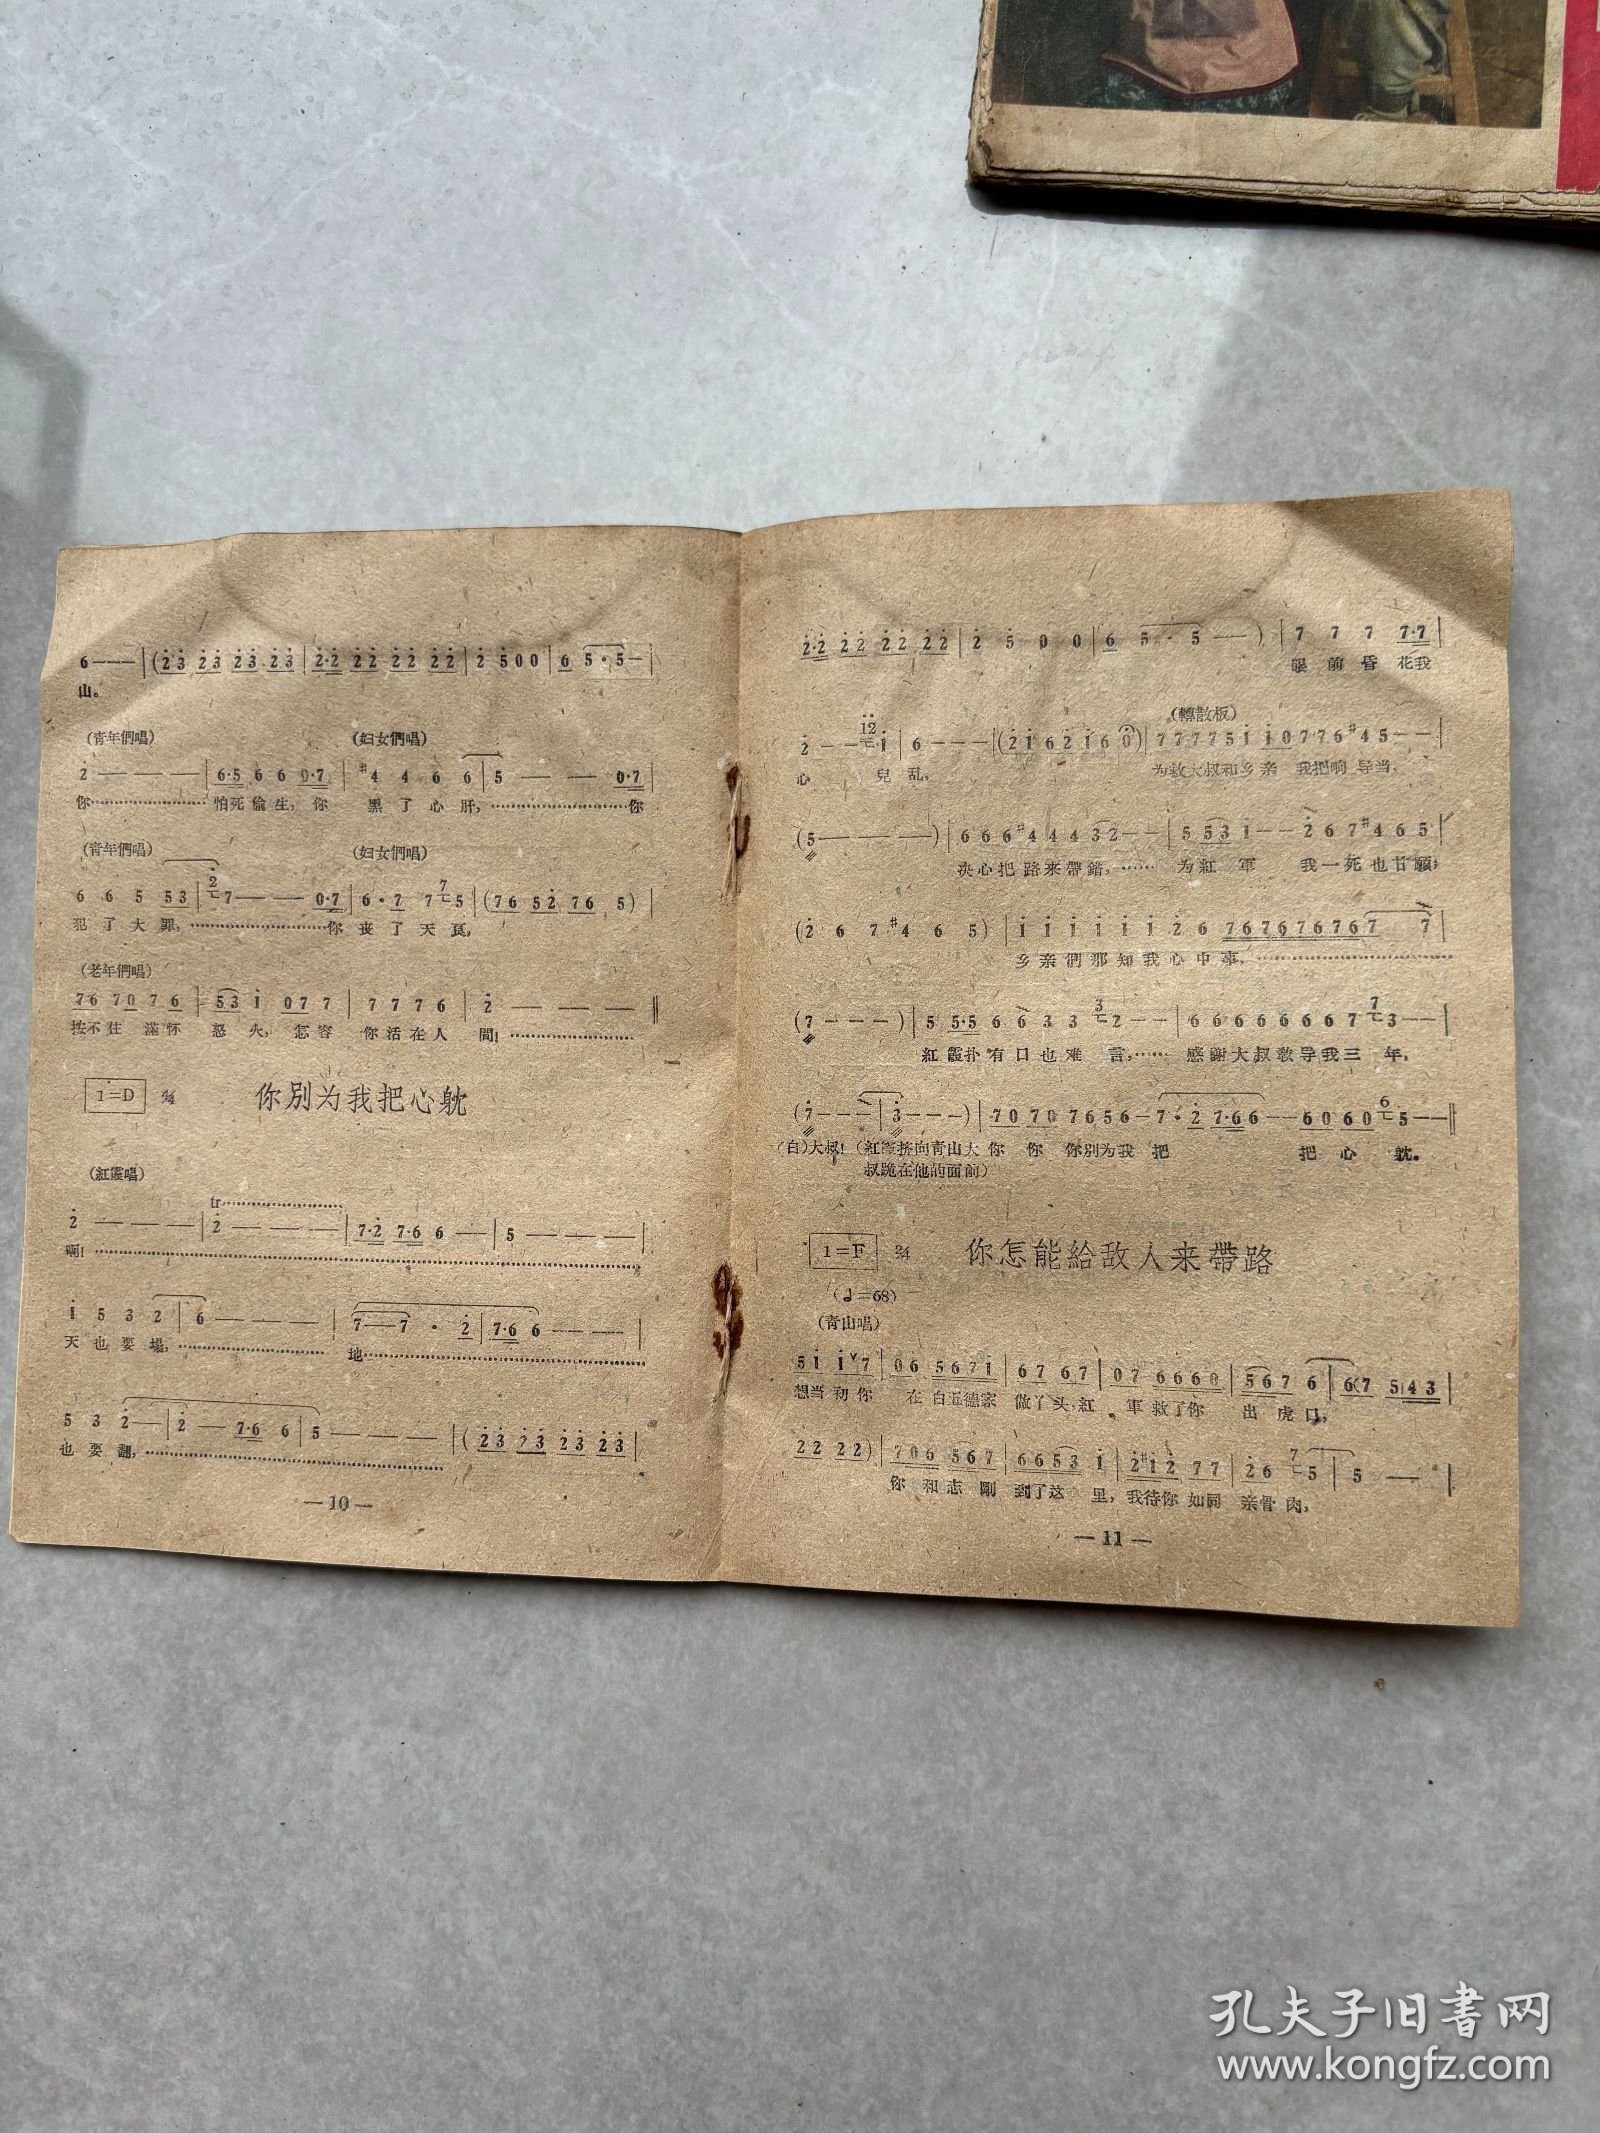 6 — — — | (2 3 2 3 2 3 2 3 | 2·2 2 2 2 2 2 2 | 2 5 0 0 | 6 5·5 — |
山。
(青年們唱) (妇女們唱)
2 — — — | 6·5 6 6 0·7 | #4 4 6 6 | 5 — — 0·7 |
你 怕死偷生, 你 黑了心肝, 你
(青年們唱) (妇女們唱)
6 6 5 5 3 | 2 7 — — 0·7 | 6·7 7 7 5 | (7 6 5 2 7 6 5) |
犯了大罪, 你丧了天良,
(老年們唱)
7 6 7 0 7 6 | 5 3 1 0 7 7 | 7 7 7 6 | 2 — — —
按不住 滿怀 怒火, 怎容 你活在人 間!
1=D 2/4 你別为我把心躭
(紅霞唱)
tr
2 — — — | 2 — — — | 7·2 7·6 6 — | 5 — — — |
啊!
1 5 3 2 | 6 — — — | 7 — 7 · 2 | 7·6 6 — — |
天也要塌, 地
5 3 2 — | 2 — 7·6 6 | 5 — — — | (2 3 2 3 2 3 2 3 |
也要翻,
— 10 —
2·2 2 2 2 2 2 2 | 2 5 0 0 | 6 5·5 — ) | 7 7 7 7·7 |
眼前昏花我
(轉散板)
2 — — 12 1 | 6 — — — | (2 1 6 2 1 6 0) | 7 7 7 7 5 1 1 0 7 7 6 #4 5 — — |
心 兒乱, 为救大叔和乡亲 我把响导当,
(5 — — — ) | 6 6 6 #4 4 4 3 2 — — | 5 5 3 1 — — 2 6 7 #4 6 5 |
决心把路来帶錯, 为紅軍 我一死也甘願;
(2 6 7 #4 6 5) | 1 1 1 1 1 1 2 6 7 6 7 6 7 6 7 6 7 7 |
乡亲們那知我心中事,
(7 — — — ) | 5 5·5 6 6 3 3 3 2 — — | 6 6 6 6 6 6 6 7 7 3 — — |
紅霞扑有口也难言, 感謝大叔教导我三年,
(7 — — — | 3 — — — ) | 7 0 7 0 7 6 5 6 — 7·2 7·6 6 — — 6 0 6 0 6 5 — —
(白)大叔! (紅霞挤向青山大 你 你 你別为我 把 把心躭。
叔跪在他的面前)
1=F 2/4 你怎能給敌人来帶路
(♩=68)
(青山唱)
5 1 1 7 | 0 6 5 6 7 1 | 6 7 6 7 | 0 7 6 6 6 0 | 5 6 7 6 | 6 (7 5 | 4 3 |
想当初你 在白五德家 做了头, 紅軍救了你 出虎口,
2 2 2 2) | 7 0 6 5 6 7 | 6 6 5 3 1 | 2 #1 2 7 7 | 2 6 7 5 | 5 — |
你和志剛 到了这里, 我待你如同 亲骨肉,
— 11 —
孔夫子旧書网
www.kongfz.com